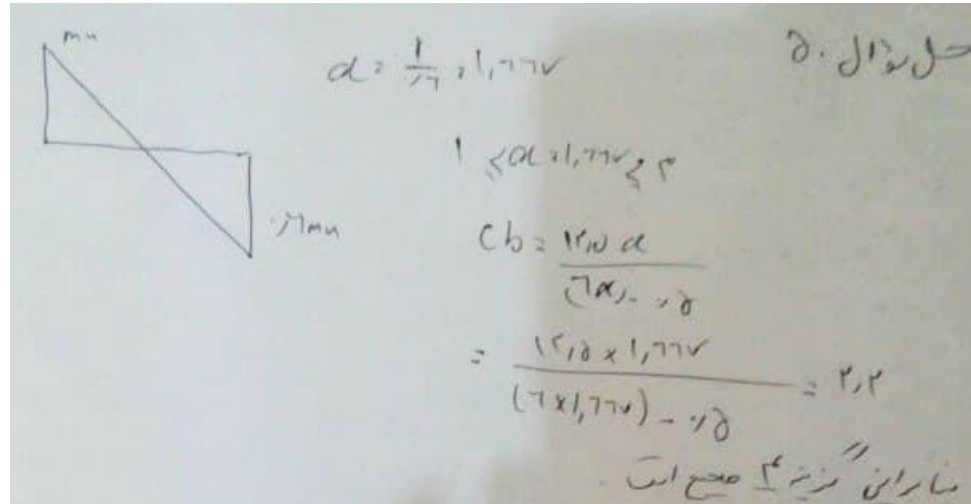 حل سوال ۵۰
Mu
۰٫۶ Mu
α = ۱/۰٫۶ = ۱٫۶۶۷
۱ ≤ α = ۱٫۶۶۷ ≤ ۳
Cb = ۱۲٫۵ α / (۶α) - ۰٫۵
= ۱۲٫۵ × ۱٫۶۶۷ / (۶ × ۱٫۶۶۷) - ۰٫۵ = ۲٫۲
بنابراین گزینه ۴ صحیح است